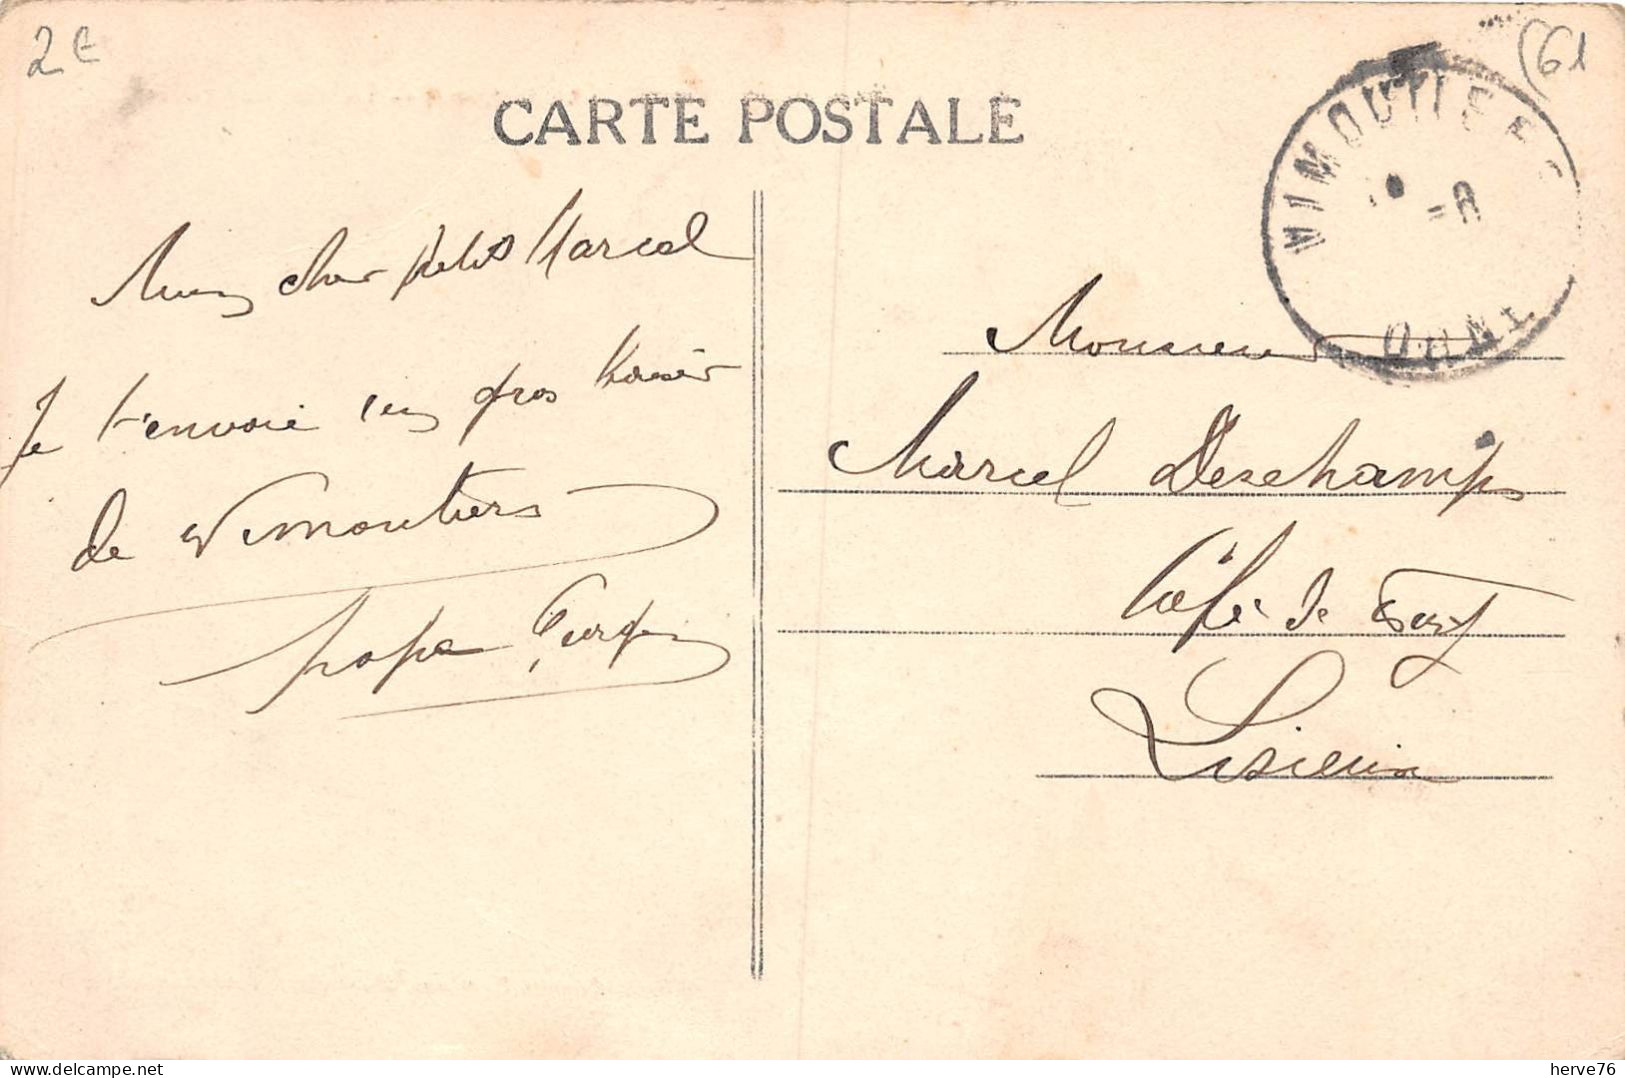 2€
(61
CARTE POSTALE
VIMOUTIERS
ORNE
Mon cher petit Marcel
Je t'envoie un gros baiser
de Vimoutiers
papa
Monsieur
Marcel Deschamps
Café de
Lisieux
delcampe.net
herve76